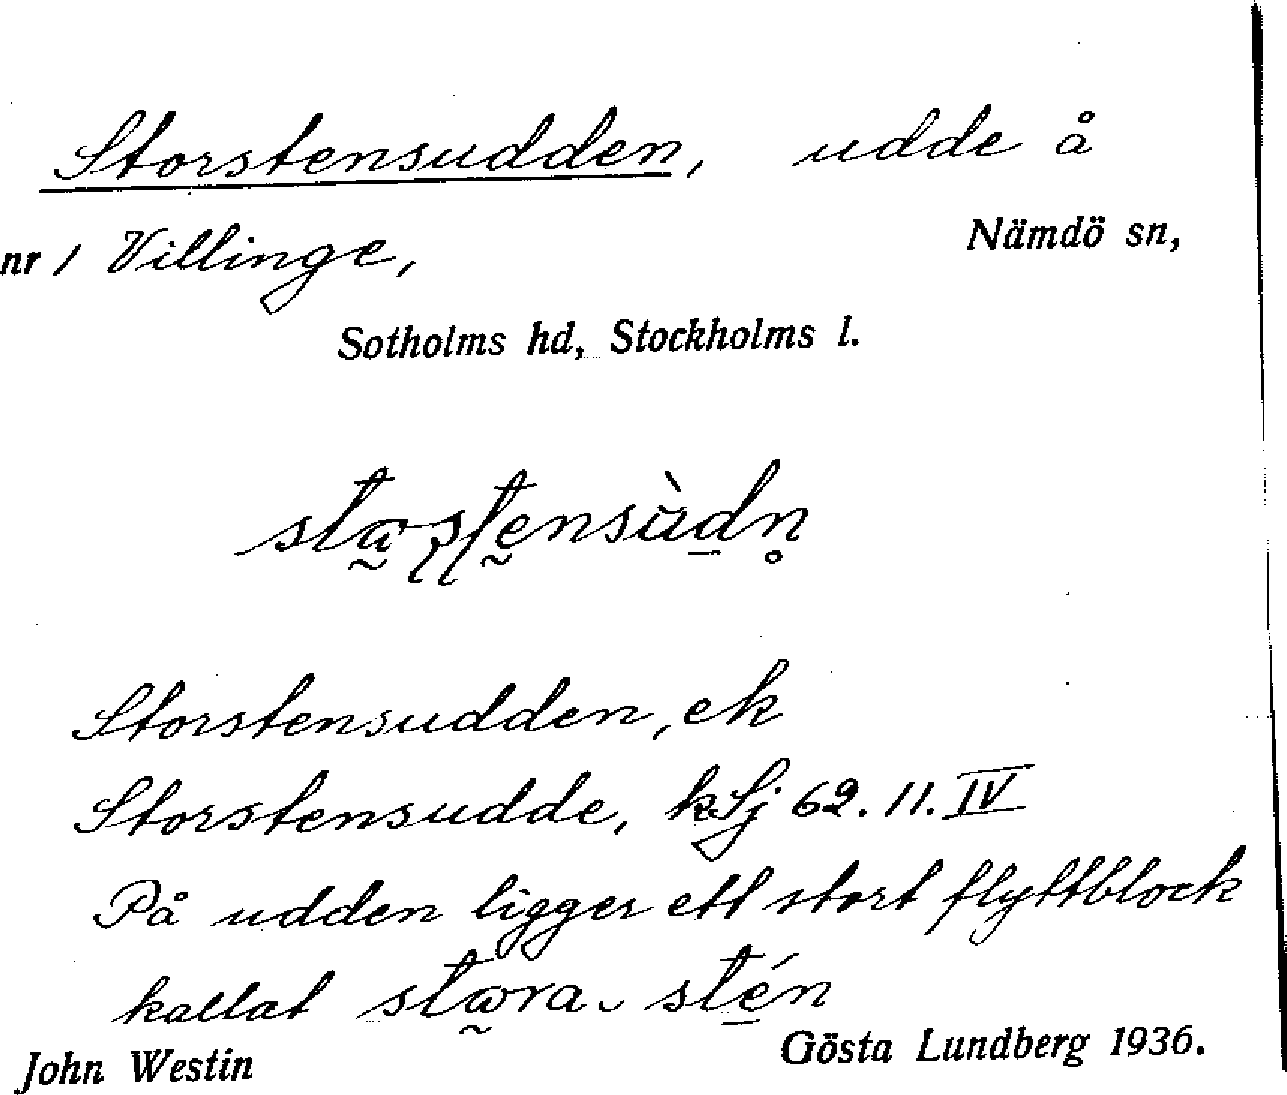 Storstensudden, udde å
nr 1 Villinge, Nämdö sn,
Sotholms hd, Stockholms l.
Storstensudden, ek
Storstensudde, kSj 62. 11. IV
På udden ligger ett stort flyttblock
kallat
John Westin Gösta Lundberg 1936.